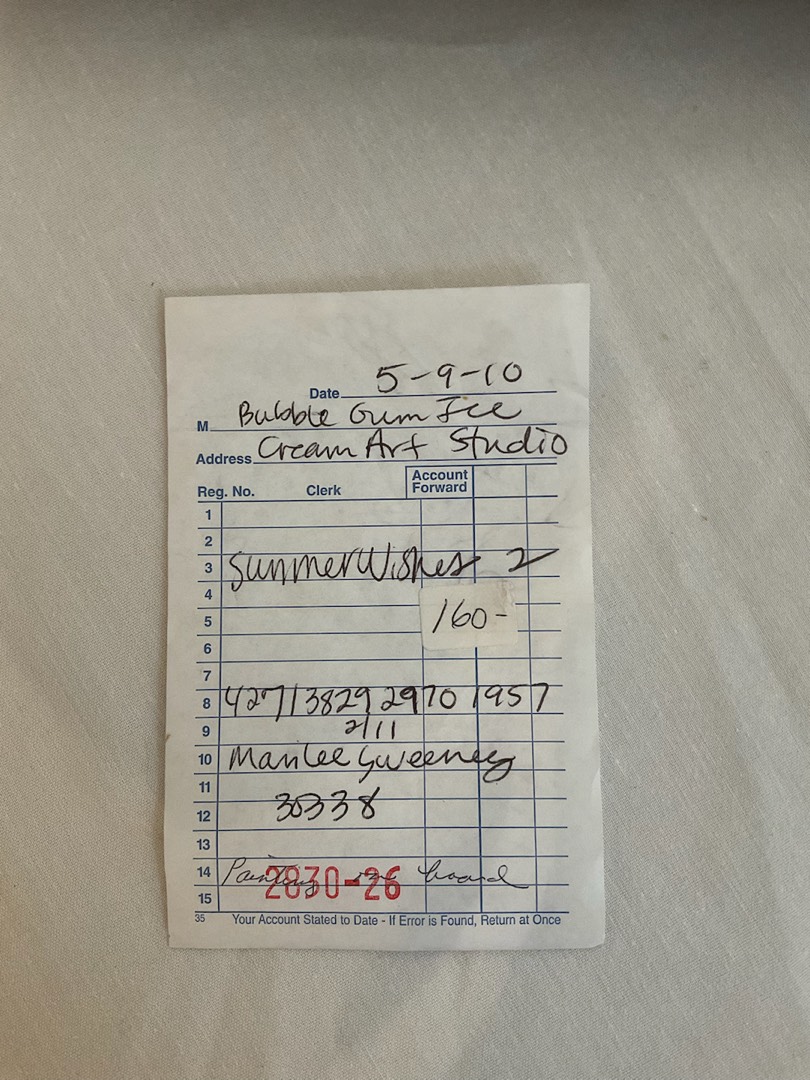 Date 5-9-10
M Bubble Gum Ice
Address Cream Art Studio
Reg. No. Clerk Account Forward
1
2
3 Summer Wishes 2
4
5 160-
6
7
8 4271 3829 2970 1957
9 2/11
10 Marilee Sweeney
11
12 30338
13
14 Painting on board
2830-26
15
35 Your Account Stated to Date - If Error is Found, Return at Once